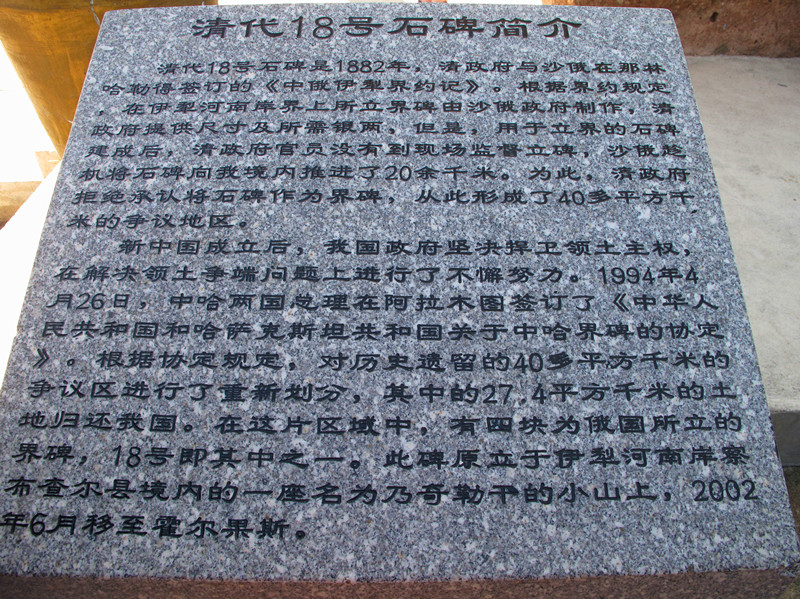 清代18号石碑简介
清代18号石碑是1882年，清政府与沙俄在那林
哈勒得签订的《中俄伊犁界约记》。根据界约规定
，在伊犁河南岸界上所立界碑由沙俄政府制作，清
政府提供尺寸及所需银两，但是，用于立界的石碑
建成后，清政府官员没有到现场监督立碑，沙俄趁
机将石碑向我境内推进了20余千米。为此，清政府
拒绝承认将石碑作为界碑，从此形成了40多平方千
米的争议地区。
新中国成立后，我国政府坚决捍卫领土主权，
在解决领土争端问题上进行了不懈努力。1994年4
月26日，中哈两国总理在阿拉木图签订了《中华人
民共和国和哈萨克斯坦共和国关于中哈界碑的协定
》。根据协定规定，对历史遗留的40多平方千米的
争议区进行了重新划分，其中的27.4平方千米的土
地归还我国。在这片区域中，有四块为俄国所立的
界碑，18号即其中之一。此碑原立于伊犁河南岸察
布查尔县境内的一座名为乃奇勒干的小山上，2002
年6月移至霍尔果斯。